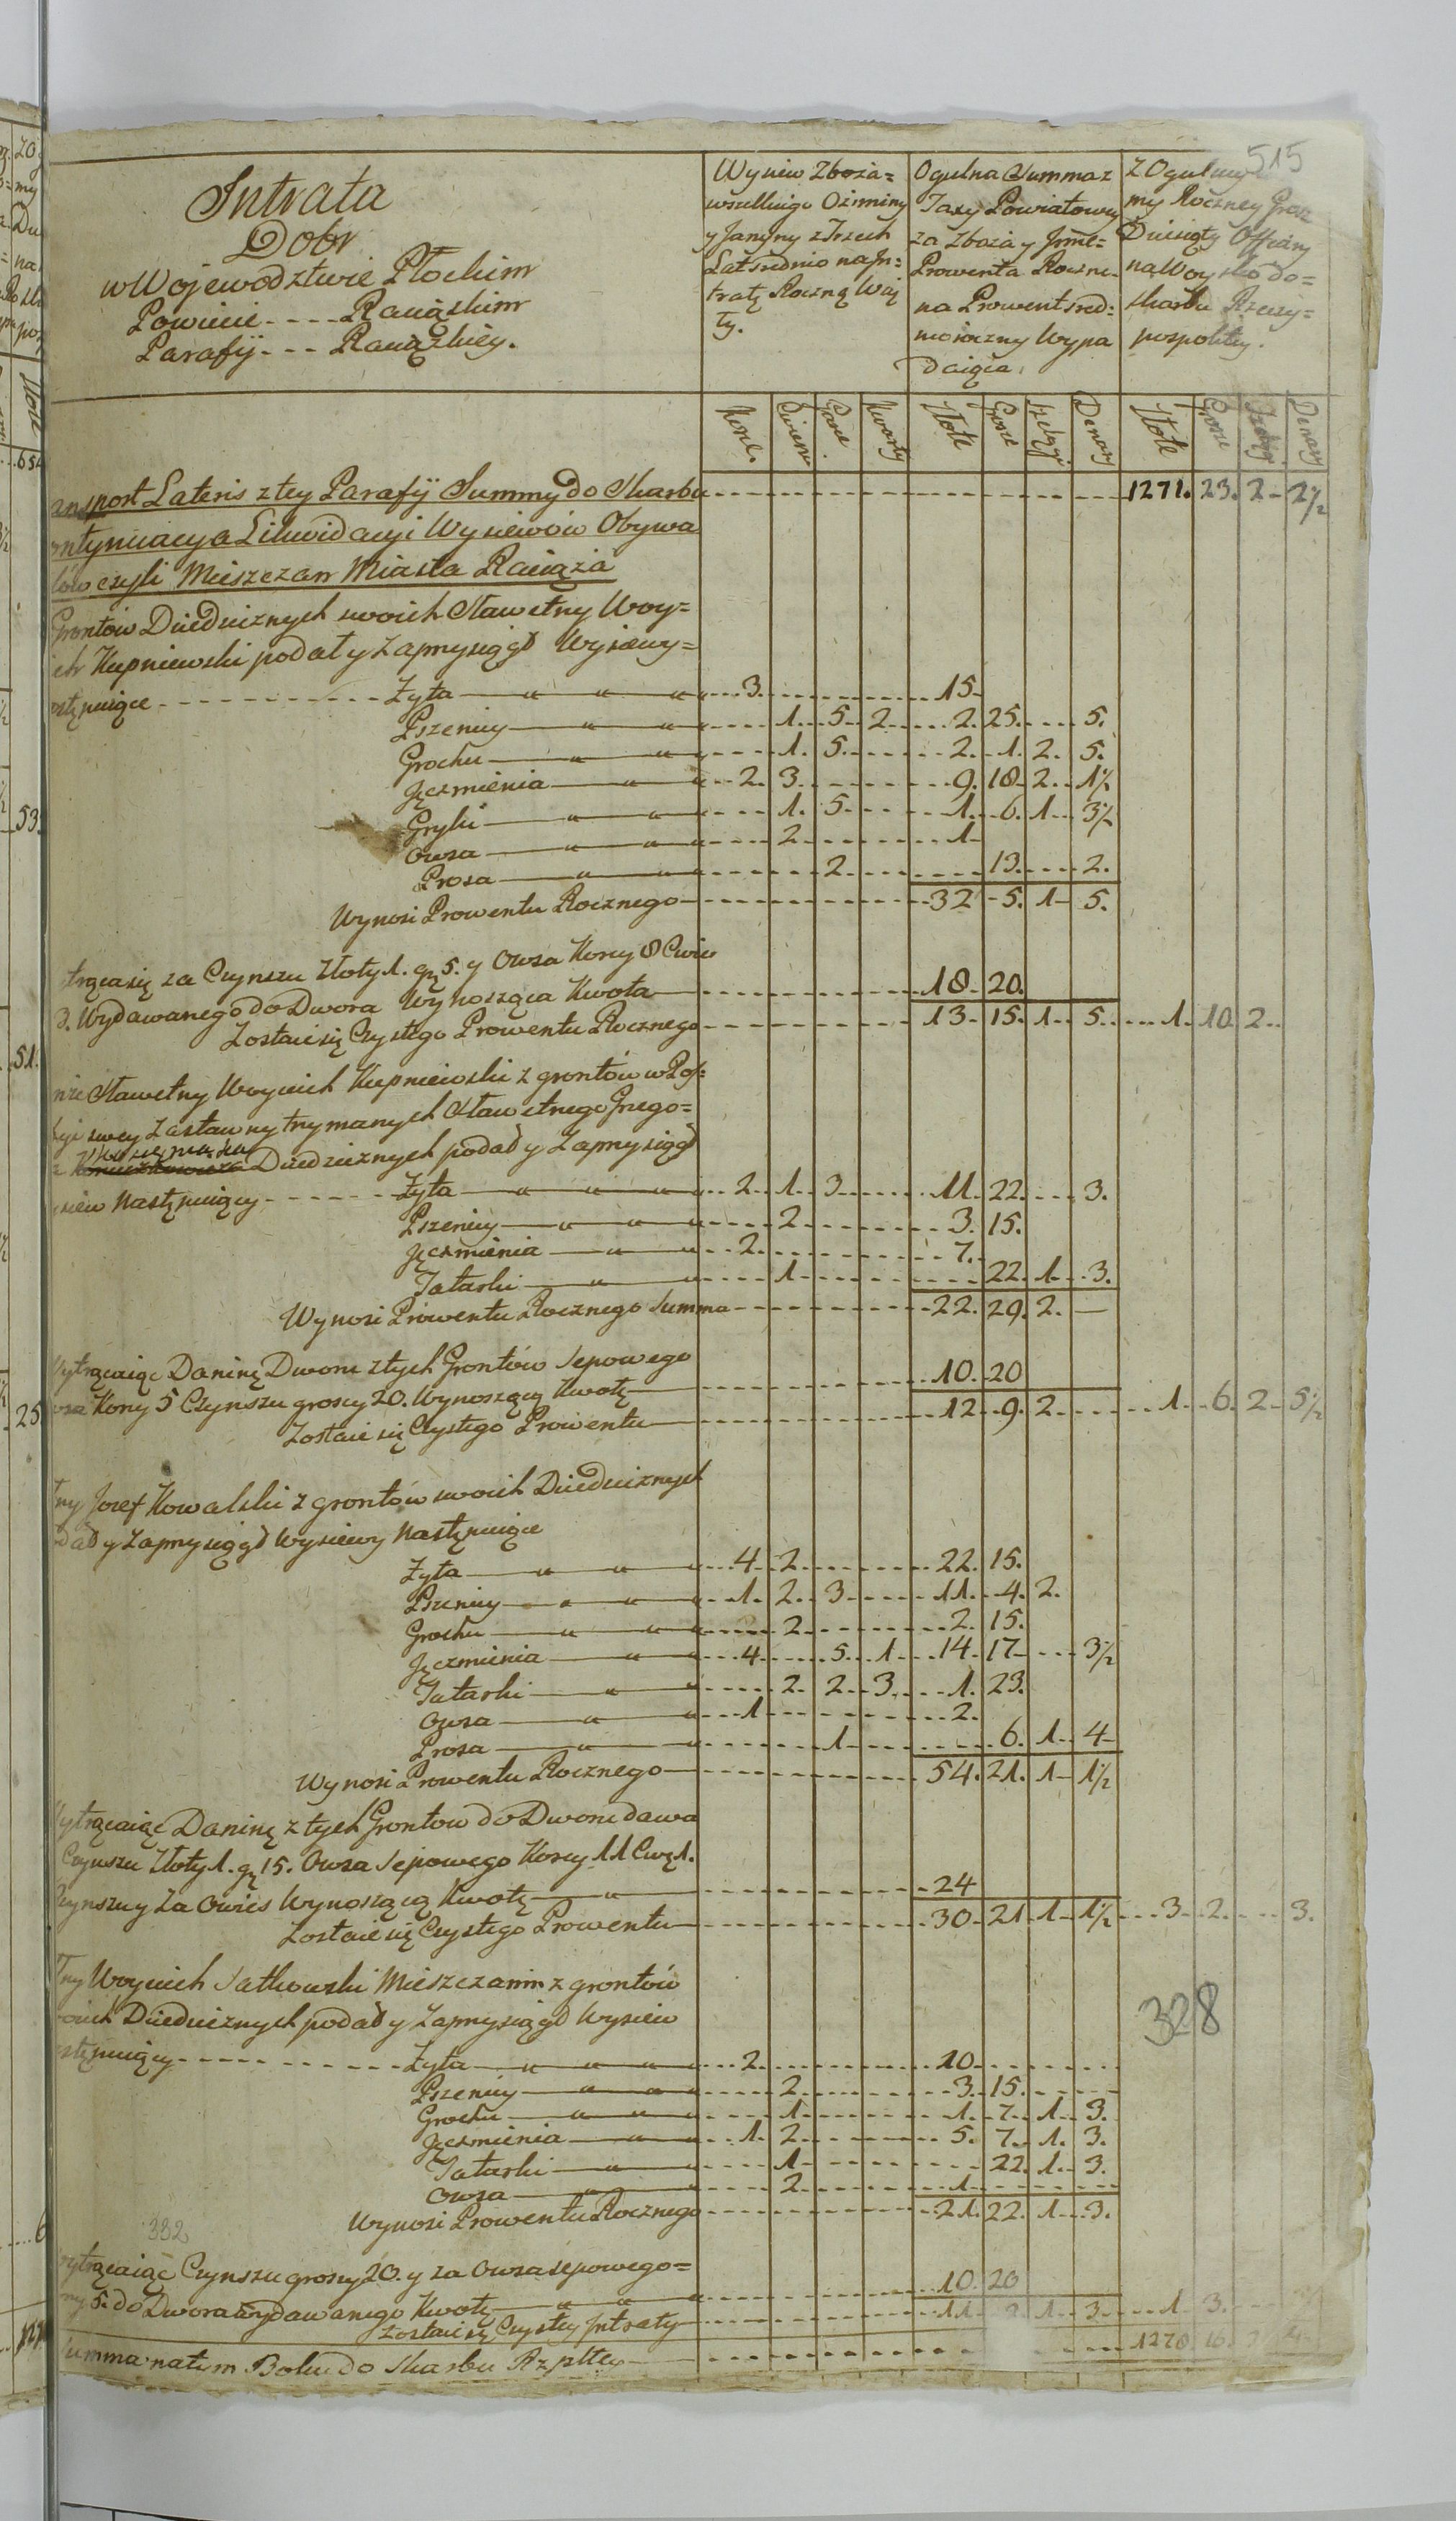 515
Intrata
Dobr
w Wojewodztwie Płockim
Powiecie - - - - Raciąskim
Parafij - - - Raciązkiey.
Wysiew Zboża=
wszelkiego Oziminy
y Jarzyny z Trzech
Lat średnio na In=
tratę Roczną Wzię
ty.
Ogulna Summa z
Taxy Powiatowey
za Zboża y Inne=
Prowenta Roczne
na Prowent sred=
nioroczny Wypa
daiąca.
Z Ogulney
my Roczney Grosz
Dziesięty Offiary
na Woysko do=
Skarbu Rzeczy=
pospolitey.
Korce. Cwierci Garce. Kwarty Złote Grosze Szelągi Denary Złote Grosze Szelągi Denary
ansport Lateris z tey Parafij Summy do Skarbu 1271. 23. 2 2½
ontynuacya Likwidacyi Wysiewów Obywa
lów czyli Mieszczan Miasta Raciąża
Grontów Dziedzicznych swoich Sławetny Woy=
ech Kupniewski podał y Zaprzysiągł Wysiewy=
astępuiące - - - Żyta 3. 15
Pszenicy 1. 5 2 2. 25. 5.
Grochu 1. 5. 2. 1. 2. 5.
Jęczmienia 2. 3. 9. 18 2. 1½
Gryki 1. 5. 1. 6. 1 3½
Owsa 2 1
Prosa 2. 13. 2.
Wynosi Prowentu Rocznego 32 5. 1 5.
trąca się za Czynszu Złoty 1. gr 5. y Owsa Korcy 8 Cwier
3. Wydawanego do Dwora Wynosząca Kwota 18 20.
Zostaie się Czystego Prowentu Rocznego 13 15. 1 5. 1. 10. 2
nże Sławetny Woyciech Kupniewski z grontów w Pos=
syi swey Zastawny trzymanych Sławetnego Grego=
Dziedzicznych podał y Zaprzysiągł
ysiew Następuiący - - - Żyta 2. 1. 3 11. 22. 3.
Pszenicy 2 3. 15.
Jęczmienia 2. 7.
Tatarki 1 22. 1 3.
Wynosi Prowentu Rocznego Summa 22. 29. 2. —
Wytrącaiąc Daninę Dworu z tych Grontów Sepowego
wsa Korcy 5 Czynszu groszy 20. Wynoszącą Kwotę 10. 20
Zostaie się Czystego Prowentu 12 9. 2 1. 6. 2 5½
tny Jozef Kowalski z grontów swoich Dziedzicznych
dał y Zaprzysiągł Wysiewy Następuiące
Żyta 4 2 22. 15.
Pszenicy 1. 2. 3 11. 4. 2.
Grochu 2 2. 15.
Jęczmienia 4 5. 1 14. 17 3½
Tatarki 2. 2 3 1. 23.
Owsa 1 2.
Prosa 1 6. 1 4
Wynosi Prowentu Rocznego 54. 21. 1 1½
Wytrącaiąc Daninę z tych Grontow do Dworu dawa
Czynszu Złoty 1. gr 15. Owsa Sepowego Korcy 11 Cwę 1.
Czynszu y Za Owies Wynoszącą Kwotę 24
Zostaie się Czystego Prowentu 30 21 1 1½ 3 2. 3.
Tny Woyciech Satkowski Mieszczanin z grontów
woich Dziedzicznych podał y Zaprzysiągł Wysiew
328
astępuiący - - - Żyta 2. 10
Pszenicy 2 3. 15.
Grochu 1 1. 7. 1 3.
Jęczmienia 1. 2 5. 7. 1. 3.
Tatarki 1 22. 1 3.
Owsa 2 1
Wynosi Prowentu Rocznego 21. 22. 1 3.
332
ytrącaiąc Czynszu groszy 20. y za Owsa sepowego=
5. do Dwora wydawanego Kwotę 10. 20
Zostaie się Czystey Intraty 11 1 3 1 3.
Summa na tym Boku do Skarbu Rzpltey 1278 16.